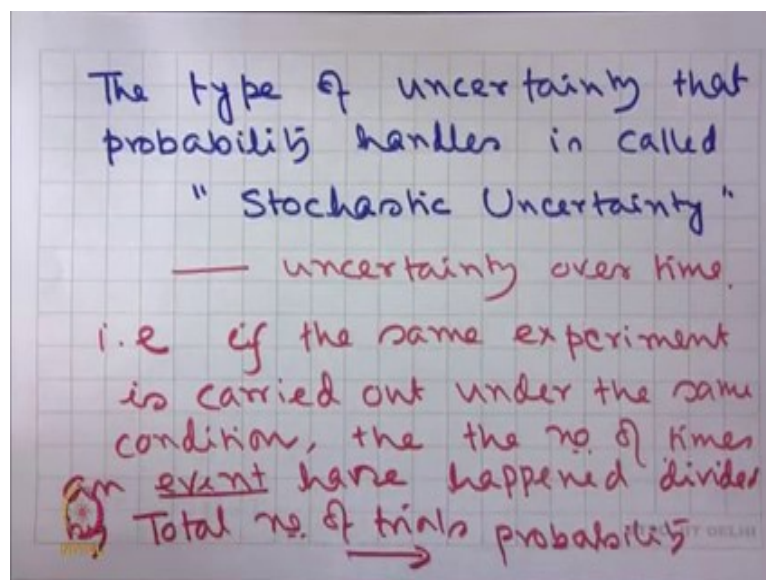 The type of uncertainty that
probability handles is called
" Stochastic Uncertainty "
— uncertainty over time.
i.e if the same experiment
is carried out under the same
condition, the the no. of times
an event have happened divided
by Total no. of trials → probability